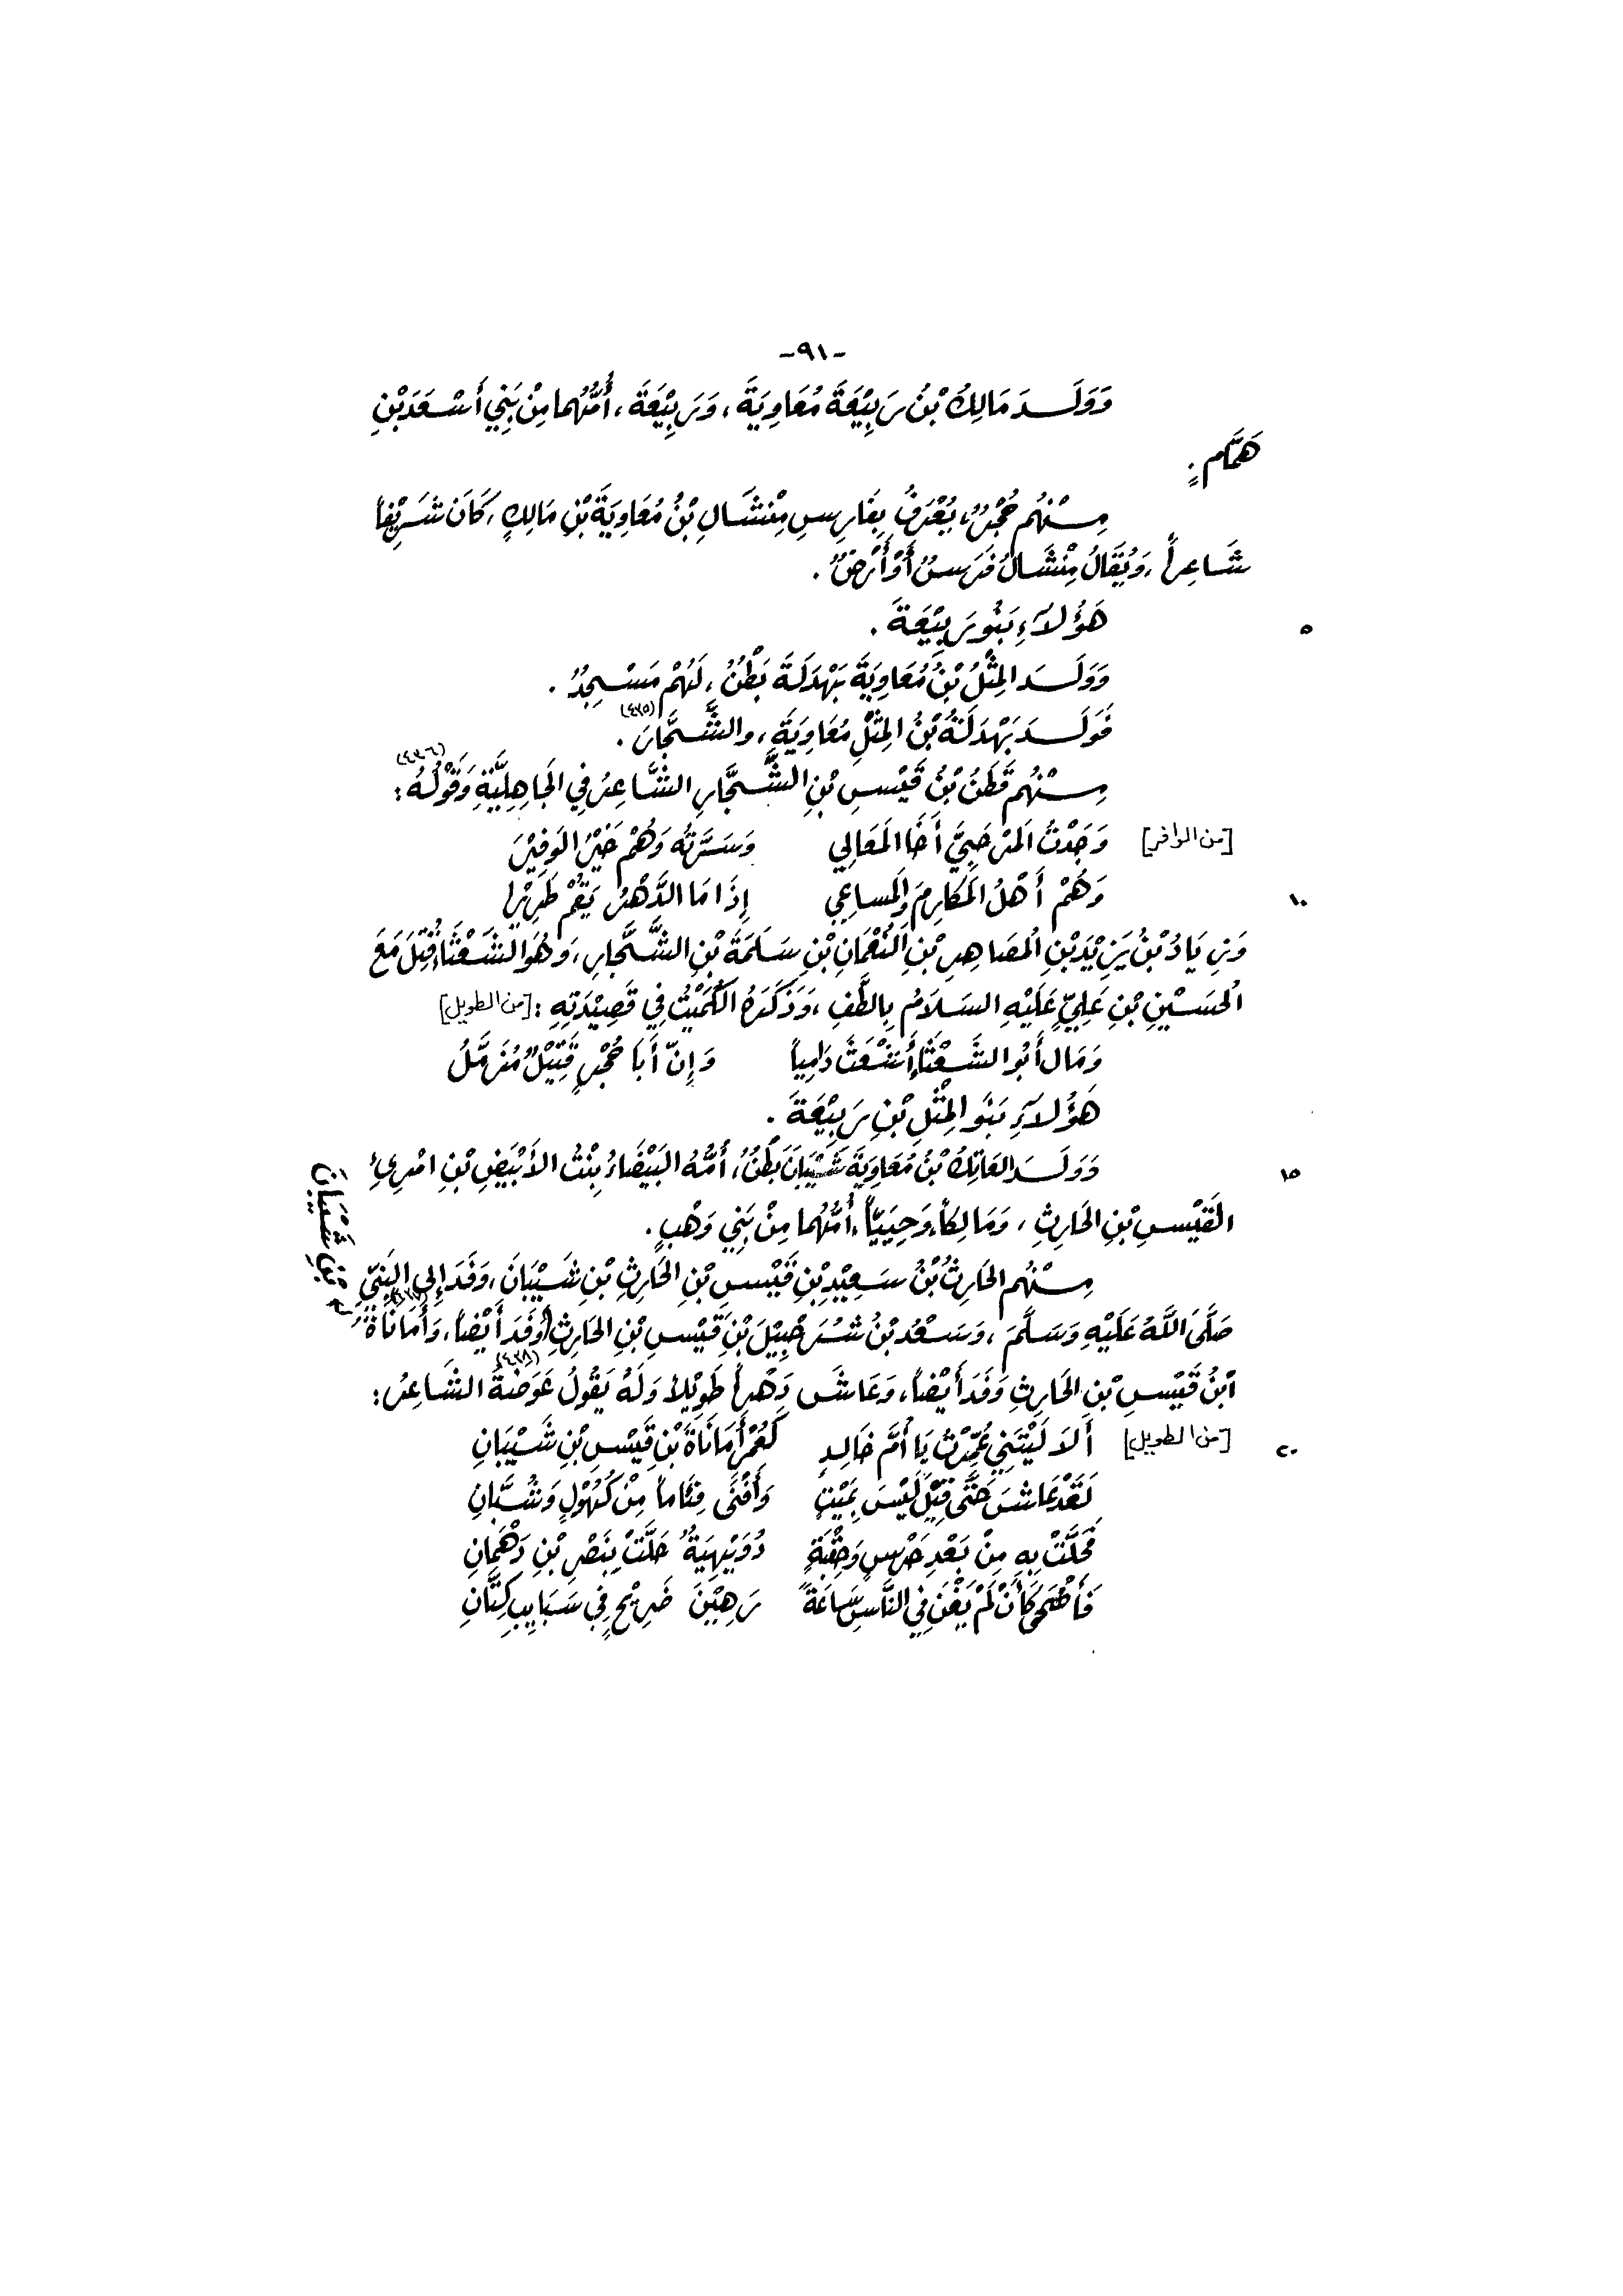 -٩١-
وَوَلَدَ مَالِكُ بْنُ رَبِيْعَةَ مُعَاوِيَةَ، وَرَبِيْعَةَ، أُمُّهُما مِنْ بَنِي أَسْعَدَ بْنِ
هَمَّامٍ:
مِنْهُم حُجْرٌ، يُعْرَفُ بِفَارِسِ مِنْشَالِ بْنُ مُعَاوِيَةَ بْنِ مَالِكٍ، كَانَ شَرِيْفاً
شَاعِراً، وَيُقَالُ مِنْشَالُ فَرَسٌ أَوْ أَرْضٌ.
هَؤُلَاءِ بَنُو رَبِيْعَةَ. ٥
وَوَلَدَ المِثْلُ بْنُ مُعَاوِيَةَ بَهْدَلَةَ بَطْنٌ، لَهُمْ مَسْجِدٌ.
فَوَلَدَ بَهْدَلَةُ بْنُ المِثْلِ مُعَاوِيَةَ (٤٣٥)، والشَّجَّارَ.
مِنْهُم قَطَنُ بْنُ قَيْسِ بْنِ الشَّجَّارِ الشَّاعِرُ فِي الجَاهِلِيَّةِ وَقَوْلُهُ (٤٣٦):
[من الوافر] وَجَدْتُ المَرْحَبِيَّ أَخَا المَعَالِي وَسَرَّتْهُ وَهُمْ خَيْرُ الوَفِيْرَ
وَهُمْ أَهْلُ المَكَارِمِ وَالمَساعِي إِذَا مَا الدَّهْرُ يَقُمْ طَرِيْرا ١٠
وَزِيَادُ بْنُ يَزِيْدَ بْنِ المُصَاهِرِ بْنِ النُعْمَانِ بْنِ سَلَمَةَ بْنِ الشَّجَّارِ، وَهُوَ الشَعْثَاءُ قُتِلَ مَعَ
الْحُسَيْنِ بْنِ عَلِيٍّ عَلَيْهِ السَلَامُ بِالطَّفِ، وَذَكَرَهُ الكُمَيْتُ فِي قَصِيْدَتِهِ: [من الطويل]
وَمَال أَبُو الشَعْثَاءِ أَشْعَثَ دَامِياً وَإِنَّ أَبَا حُجْرٍ قَتِيْلٌ مُزَمَّلُ
هَؤُلَاءِ بَنُو المِثْلِ بْنِ رَبِيْعَةَ.
وَوَلَدَ العَاتِكُ بْنُ مُعَاوِيَةَ شَيْبَانَ بَطْنٌ، أُمُّهُ البَيْضَاءُ بِنْتُ الأَبْيَضِ بْنِ امْرِئِ ١٥
القَيْسِ بْنِ الحَارِثِ، وَمَالِكاً، وَحِيَيّاً، أُمُّهُما مِنْ بَنِي وَهْبٍ.
مِنْهُم الحَارِثُ بْنُ سَعِيْدِ بْنِ قَيْسِ بْنِ الحَارِثِ بْنِ شَيْبَانَ، وَفَدَ إِلى النَبِيِّ
صَلَّى اللَّهُ عَلَيْهِ وَسَلَّمَ، وَسَعْدُ بْنُ شُرَحْبِيْلَ بْنِ قَيْسِ بْنِ الحَارِثِ وَفَدَ أَيْضاً، وَأَمَانَاةُ
بْنِ شَيْبَانَ
ابْنُ قَيْسِ بْنِ الحَارِثِ وَفَدَ أَيْضاً، وَعَاشَ دَهْراً طَوِيْلاً وَلَهُ يَقُولُ عَوَضَةُ (٤٣٨) الشَاعِرُ:
[من الطويل] أَلَا لَيْتَنِي عُمِّرْتُ يَا أُمَّ خَالِدٍ كَعُمْرِ أَمَانَاةَ بْنِ قَيْسِ بْنِ شَيْبَانِ ٢٠
لَقَدْ عَاشَ حَتَّى قِيْلَ لَيْسَ بِمَيْتٍ وَأَفْنَى فِئَاماً مِنْ كُهُولٍ وَشُبَّانِ
فَحَلَّتْ بِهِ مِنْ بَعْدِ حَرْسٍ وَحِقْبَةٍ دُوَيْهِيَةٌ حَلَّتْ بِنَصْرِ بْنِ دَهْمَانِ
فَأَضْحَى كَأَنْ لَمْ يَغْنَ فِي النَّاسِ سَاعَةً رَهِيْنَ ضَرِيْحٍ فِي سَبَايِبِ كِتَّانِ